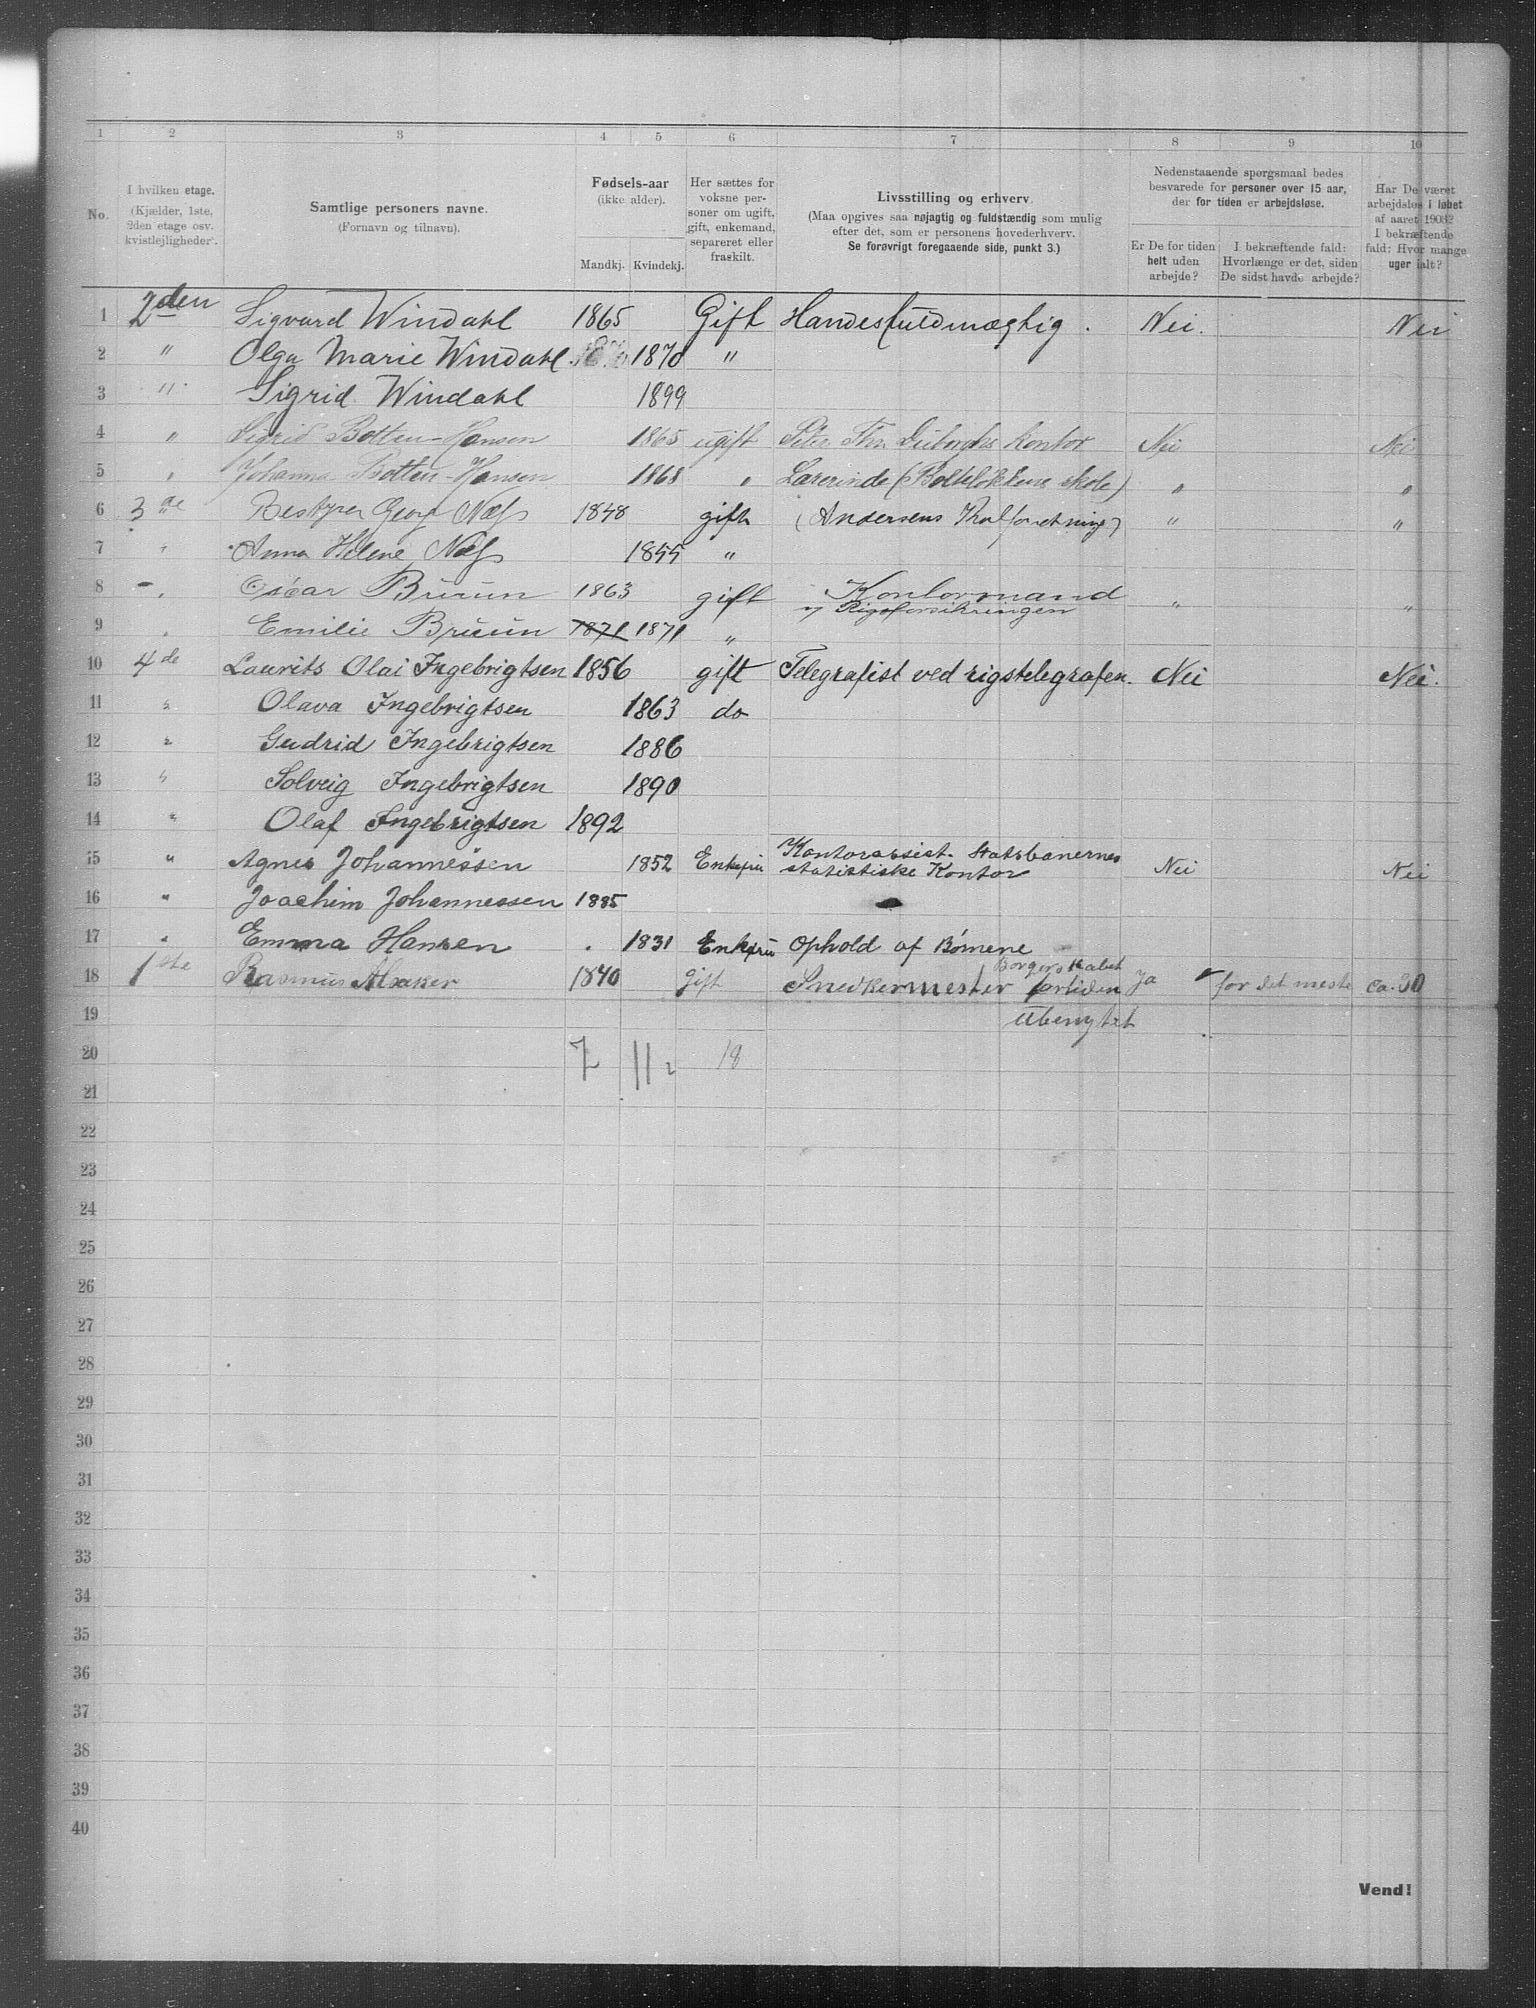 1 2 3 4 5 6 7 8 9 10
No.
I hvilken etage.
(Kjælder, 1ste,
2den etage osv.
kvistlejligheder.
Samtlige personers navne.
(Fornavn og tilnavn).
Fødsels-aar
(ikke alder).
Mandkj. Kvindekj.
Her sættes for
voksne per-
soner om ugift,
gift, enkemand,
separeret eller
fraskilt.
Livsstilling og erhverv.
(Maa opgives saa nøjagtig og fuldstændig som mulig
efter det, som er personens hovederhverv.
Se forøvrigt foregaaende side, punkt 3.)
Nedenstaaende spørgsmaal bedes
besvarede for personer over 15 aar,
der for tiden er arbejdsløse.
Er De for tiden
helt uden
arbejde?
I bekræftende fald:
Hvorlænge er det, siden
De sidst havde arbejde?
Har De været
arbejdsløs i løbet
af aaret 1902
I bekræftende
fald: Hvor mange
uger ialt?
1 2den Sigvard Windahl 1865 Gift Handesfuldmægtig. Nei. Nei
2 " Olga Marie Windahl 1870 "
3 " Sigrid Windahl 1899
4 " Sigrid Botten-Hansen 1865 ugift Kontor Nei Nei
5 " Johanna Botten-Hansen 1868 " Lærerinde (Bolteløkkens skole) " "
6 3de Bestyrer Georg Næss 1848 gift (Andersens Kulforretning) " "
7 " Anna Helene Næss 1855 "
8 " Oscar Bruun 1863 gift Kontormand
v/ Rigsforsikringen " "
9 " Emilie Bruun 1871 1871 "
10 4de Laurits Olai Ingebrigtsen 1856 gift Telegrafist ved rigstelegrafen. Nei Nei.
11 " Olava Ingebrigtsen 1863 do
12 " Gudrid Ingebrigtsen 1886
13 " Solveig Ingebrigtsen 1890
14 " Olaf Ingebrigtsen 1892
15 " Agnes Johannessen 1852 Enkefru Kontorassist. Statsbanernes
statistiske Kontor Nei Nei
16 " Joachim Johannessen 1885
17 " Emma Hansen 1831 Enkefru Ophold af Børnene
18 1ste Rasmus Alsaker 1840 Gift Snedkermester Borgerskabet
fortiden Ja for det meste ca. 30
19 Ubenyttet
20 7 11 18
21
22
23
24
25
26
27
28
29
30
31
32
33
34
35
36
37
38
39
40
Vend!